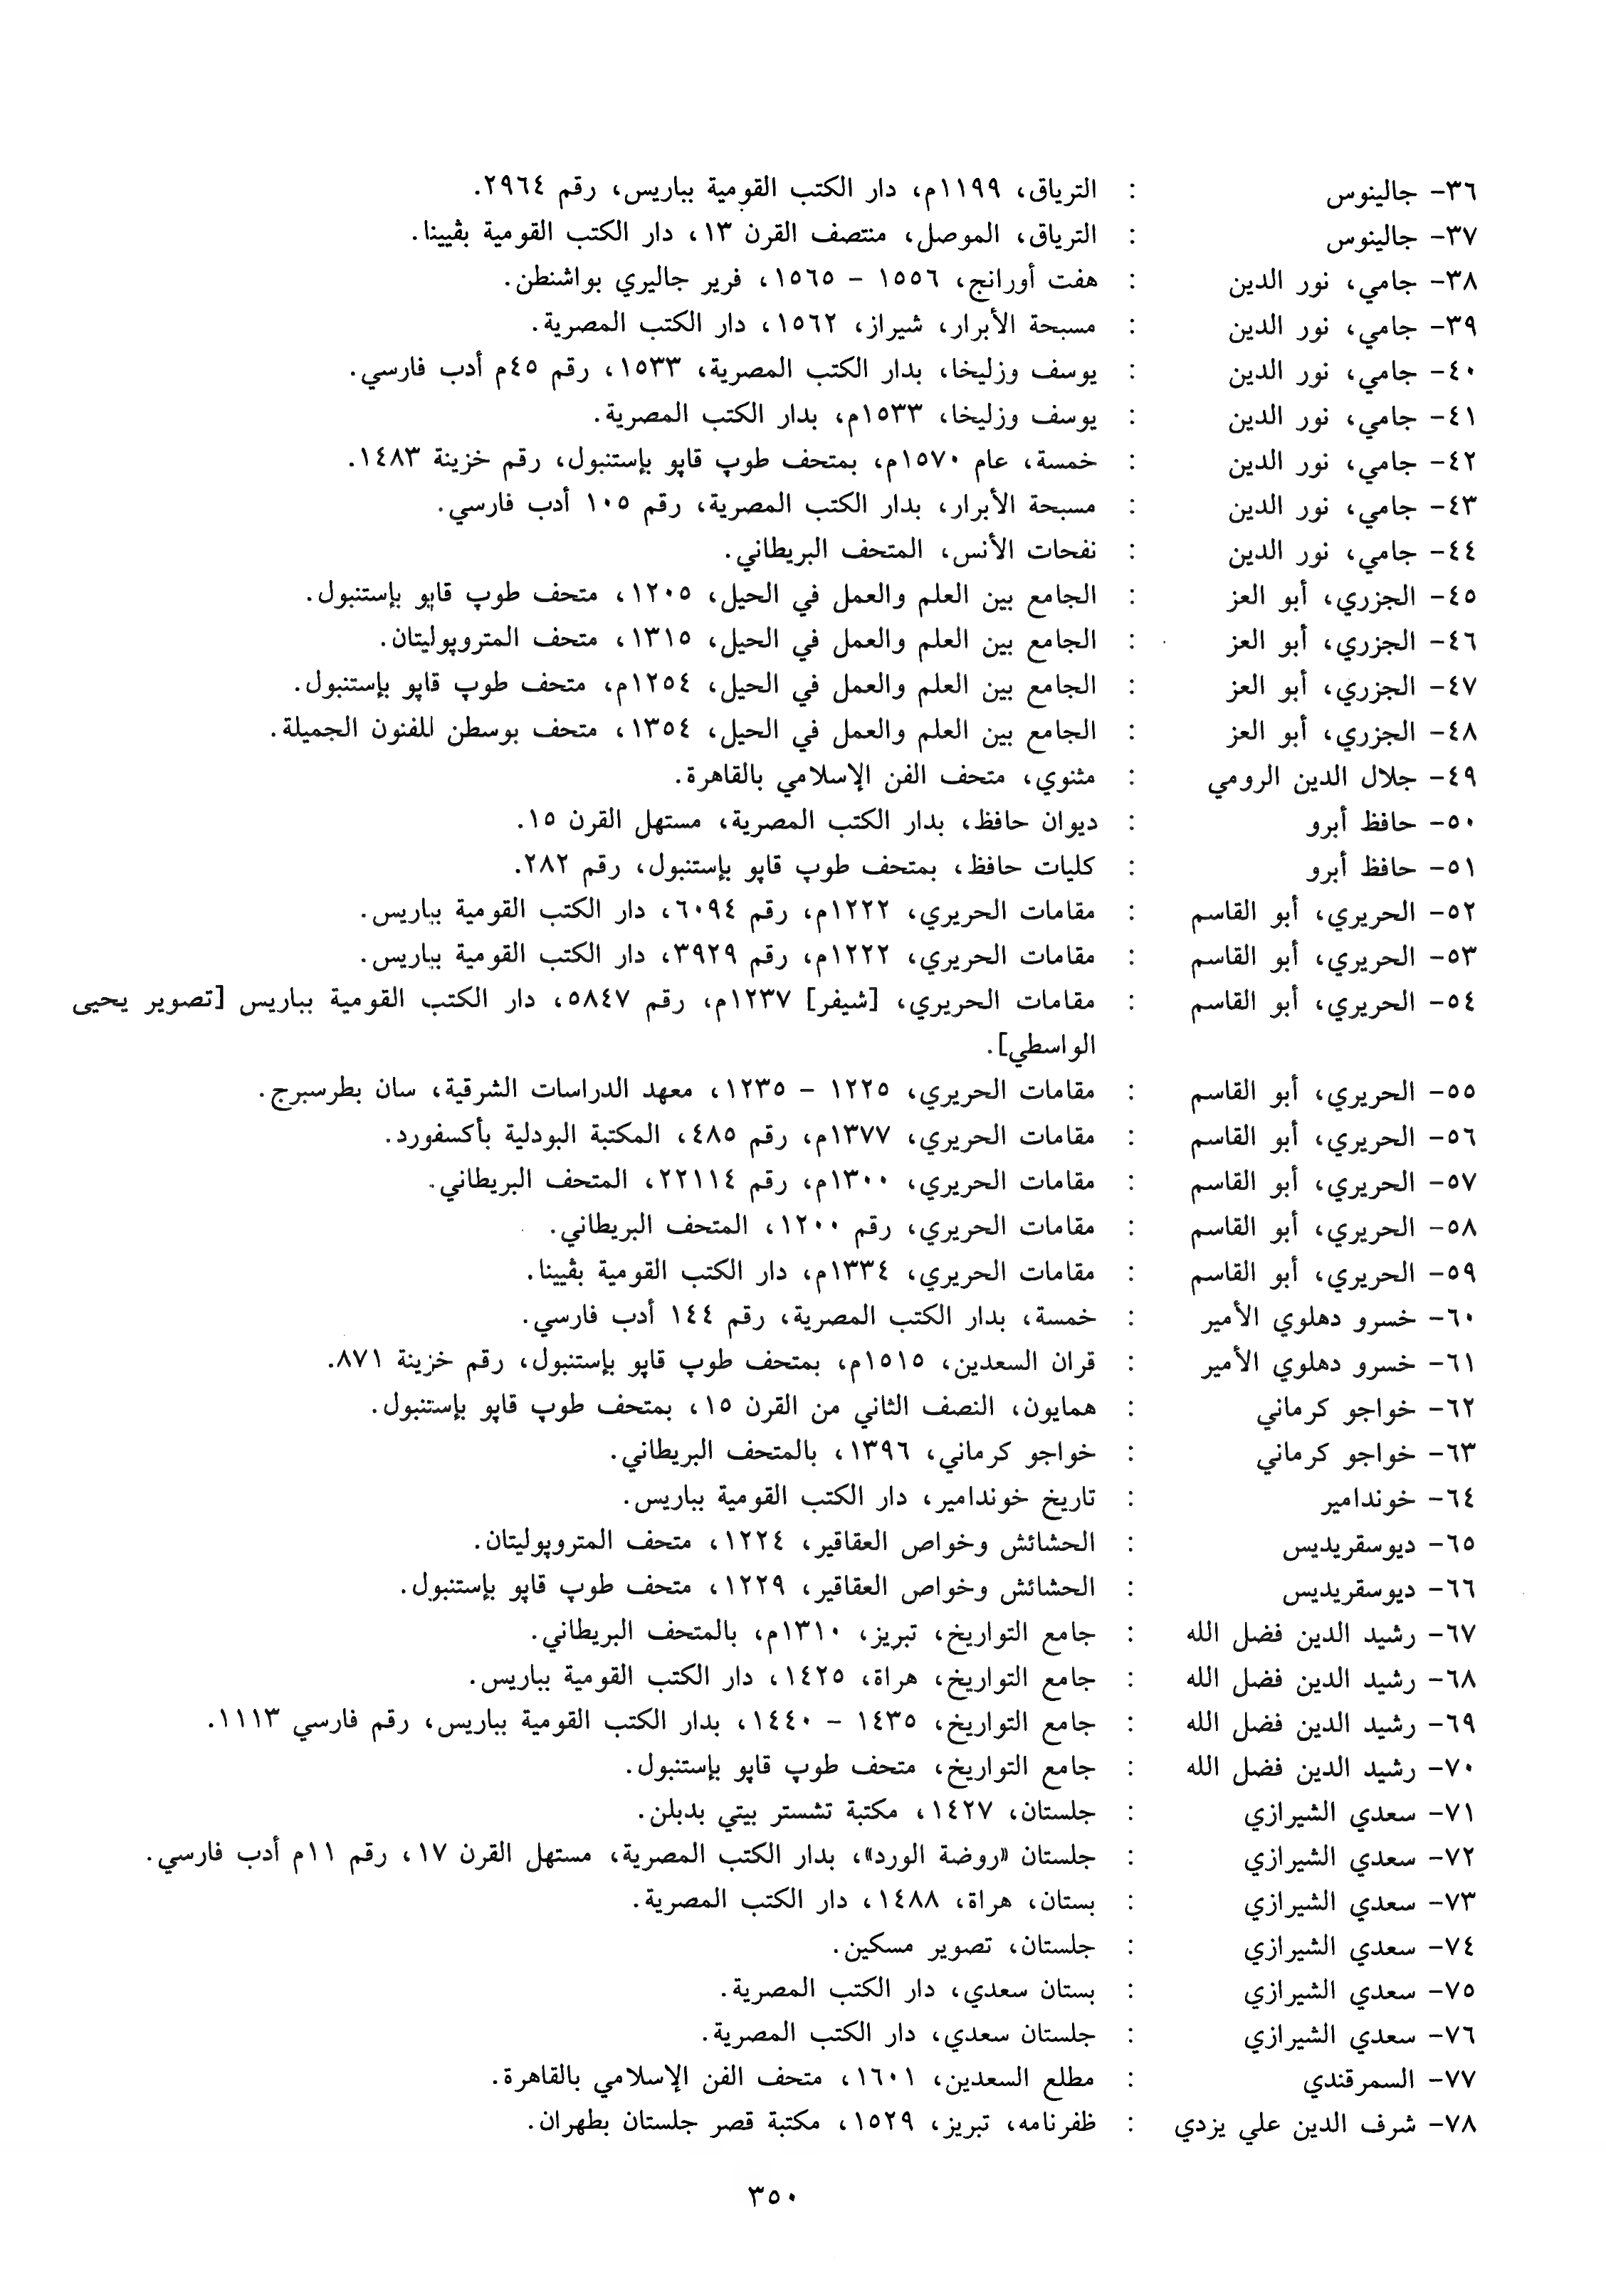 ٣٦- جالينوس : الترياق، ١١٩٩م، دار الكتب القومية بباريس، رقم ٢٩٦٤.
٣٧- جالينوس : الترياق، الموصل، منتصف القرن ١٣، دار الكتب القومية بڤيينا.
٣٨- جامي، نور الدين : هفت أورانج، ١٥٥٦ - ١٥٦٥، فرير جاليري بواشنطن.
٣٩- جامي، نور الدين : مسبحة الأبرار، شيراز، ١٥٦٢، دار الكتب المصرية.
٤٠- جامي، نور الدين : يوسف وزليخا، بدار الكتب المصرية، ١٥٣٣، رقم ٤٥م أدب فارسي.
٤١- جامي، نور الدين : يوسف وزليخا، ١٥٣٣م، بدار الكتب المصرية.
٤٢- جامي، نور الدين : خمسة، عام ١٥٧٠م، بمتحف طوپ قاپو بإستنبول، رقم خزينة ١٤٨٣.
٤٣- جامي، نور الدين : مسبحة الأبرار، بدار الكتب المصرية، رقم ١٠٥ أدب فارسي.
٤٤- جامي، نور الدين : نفحات الأنس، المتحف البريطاني.
٤٥- الجزري، أبو العز : الجامع بين العلم والعمل في الحيل، ١٢٠٥، متحف طوپ قاپو بإستنبول.
٤٦- الجزري، أبو العز : الجامع بين العلم والعمل في الحيل، ١٣١٥، متحف المتروپوليتان.
٤٧- الجزري، أبو العز : الجامع بين العلم والعمل في الحيل، ١٢٥٤م، متحف طوپ قاپو بإستنبول.
٤٨- الجزري، أبو العز : الجامع بين العلم والعمل في الحيل، ١٣٥٤، متحف بوسطن للفنون الجميلة.
٤٩- جلال الدين الرومي : مثنوي، متحف الفن الإسلامي بالقاهرة.
٥٠- حافظ أبرو : ديوان حافظ، بدار الكتب المصرية، مستهل القرن ١٥.
٥١- حافظ أبرو : كليات حافظ، بمتحف طوپ قاپو بإستنبول، رقم ٢٨٢.
٥٢- الحريري، أبو القاسم : مقامات الحريري، ١٢٢٢م، رقم ٦٠٩٤، دار الكتب القومية بباريس.
٥٣- الحريري، أبو القاسم : مقامات الحريري، ١٢٢٢م، رقم ٣٩٢٩، دار الكتب القومية بباريس.
٥٤- الحريري، أبو القاسم : مقامات الحريري، [شيفر] ١٢٣٧م، رقم ٥٨٤٧، دار الكتب القومية بباريس [تصوير يحيى
الواسطي].
٥٥- الحريري، أبو القاسم : مقامات الحريري، ١٢٢٥ - ١٢٣٥، معهد الدراسات الشرقية، سان بطرسبرج.
٥٦- الحريري، أبو القاسم : مقامات الحريري، ١٣٧٧م، رقم ٤٨٥، المكتبة البودلية بأكسفورد.
٥٧- الحريري، أبو القاسم : مقامات الحريري، ١٣٠٠م، رقم ٢٢١١٤، المتحف البريطاني.
٥٨- الحريري، أبو القاسم : مقامات الحريري، رقم ١٢٠٠، المتحف البريطاني.
٥٩- الحريري، أبو القاسم : مقامات الحريري، ١٣٣٤م، دار الكتب القومية بڤيينا.
٦٠- خسرو دهلوي الأمير : خمسة، بدار الكتب المصرية، رقم ١٤٤ أدب فارسي.
٦١- خسرو دهلوي الأمير : قران السعدين، ١٥١٥م، بمتحف طوپ قاپو بإستنبول، رقم خزينة ٨٧١.
٦٢- خواجو كرماني : همايون، النصف الثاني من القرن ١٥، بمتحف طوپ قاپو بإستنبول.
٦٣- خواجو كرماني : خواجو كرماني، ١٣٩٦، بالمتحف البريطاني.
٦٤- خوندامير : تاريخ خوندامير، دار الكتب القومية بباريس.
٦٥- ديوسقريديس : الحشائش وخواص العقاقير، ١٢٢٤، متحف المتروپوليتان.
٦٦- ديوسقريديس : الحشائش وخواص العقاقير، ١٢٢٩، متحف طوپ قاپو بإستنبول.
٦٧- رشيد الدين فضل الله : جامع التواريخ، تبريز، ١٣١٠م، بالمتحف البريطاني.
٦٨- رشيد الدين فضل الله : جامع التواريخ، هراة، ١٤٢٥، دار الكتب القومية بباريس.
٦٩- رشيد الدين فضل الله : جامع التواريخ، ١٤٣٥ - ١٤٤٠، بدار الكتب القومية بباريس، رقم فارسي ١١١٣.
٧٠- رشيد الدين فضل الله : جامع التواريخ، متحف طوپ قاپو بإستنبول.
٧١- سعدي الشيرازي : جلستان، ١٤٢٧، مكتبة تشستر بيتي بدبلن.
٧٢- سعدي الشيرازي : جلستان «روضة الورد»، بدار الكتب المصرية، مستهل القرن ١٧، رقم ١١م أدب فارسي.
٧٣- سعدي الشيرازي : بستان، هراة، ١٤٨٨، دار الكتب المصرية.
٧٤- سعدي الشيرازي : جلستان، تصوير مسكين.
٧٥- سعدي الشيرازي : بستان سعدي، دار الكتب المصرية.
٧٦- سعدي الشيرازي : جلستان سعدي، دار الكتب المصرية.
٧٧- السمرقندي : مطلع السعدين، ١٦٠١، متحف الفن الإسلامي بالقاهرة.
٧٨- شرف الدين علي يزدي : ظفرنامه، تبريز، ١٥٢٩، مكتبة قصر جلستان بطهران.
٣٥٠